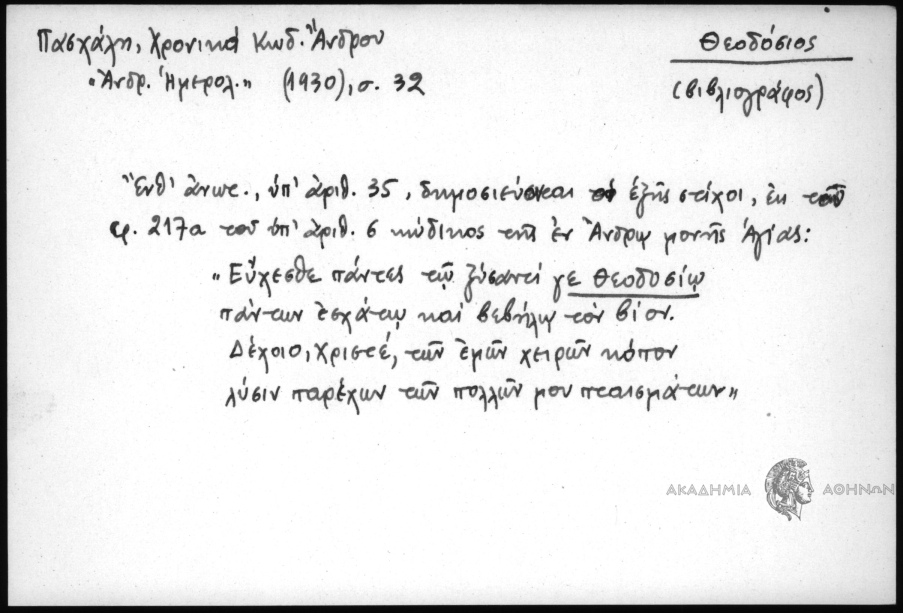 Πασχάλη, Χρονικά Κωδ. Ἄνδρου
Θεοδόσιος
"Ἀνδρ. Ἡμερολ." (1930), σ. 32
(βιβλιογράφος)
Ἔνθ' ἀνωτ., ὑπ' ἀριθ. 35, δημοσιεύονται οἱ ἑξῆς στίχοι, ἐκ τοῦ
φ. 217α τοῦ ὑπ' ἀριθ. 6 κώδικος τῆς ἐν Ἄνδρῳ μονῆς Ἁγίας:
"Εὔχεσθε πάντες τῷ ξύσαντί γε Θεοδοσίῳ
πάντων ἐσχάτῳ καί βεβήλῳ τὸν βίον.
Δέχοιο, Χριστέ, τῶν ἐμῶν χειρῶν κόπον
λύσιν παρέχων τῶν πολλῶν μου πταισμάτων"
ΑΚΑΔΗΜΙΑ ΑΘΗΝΩΝ